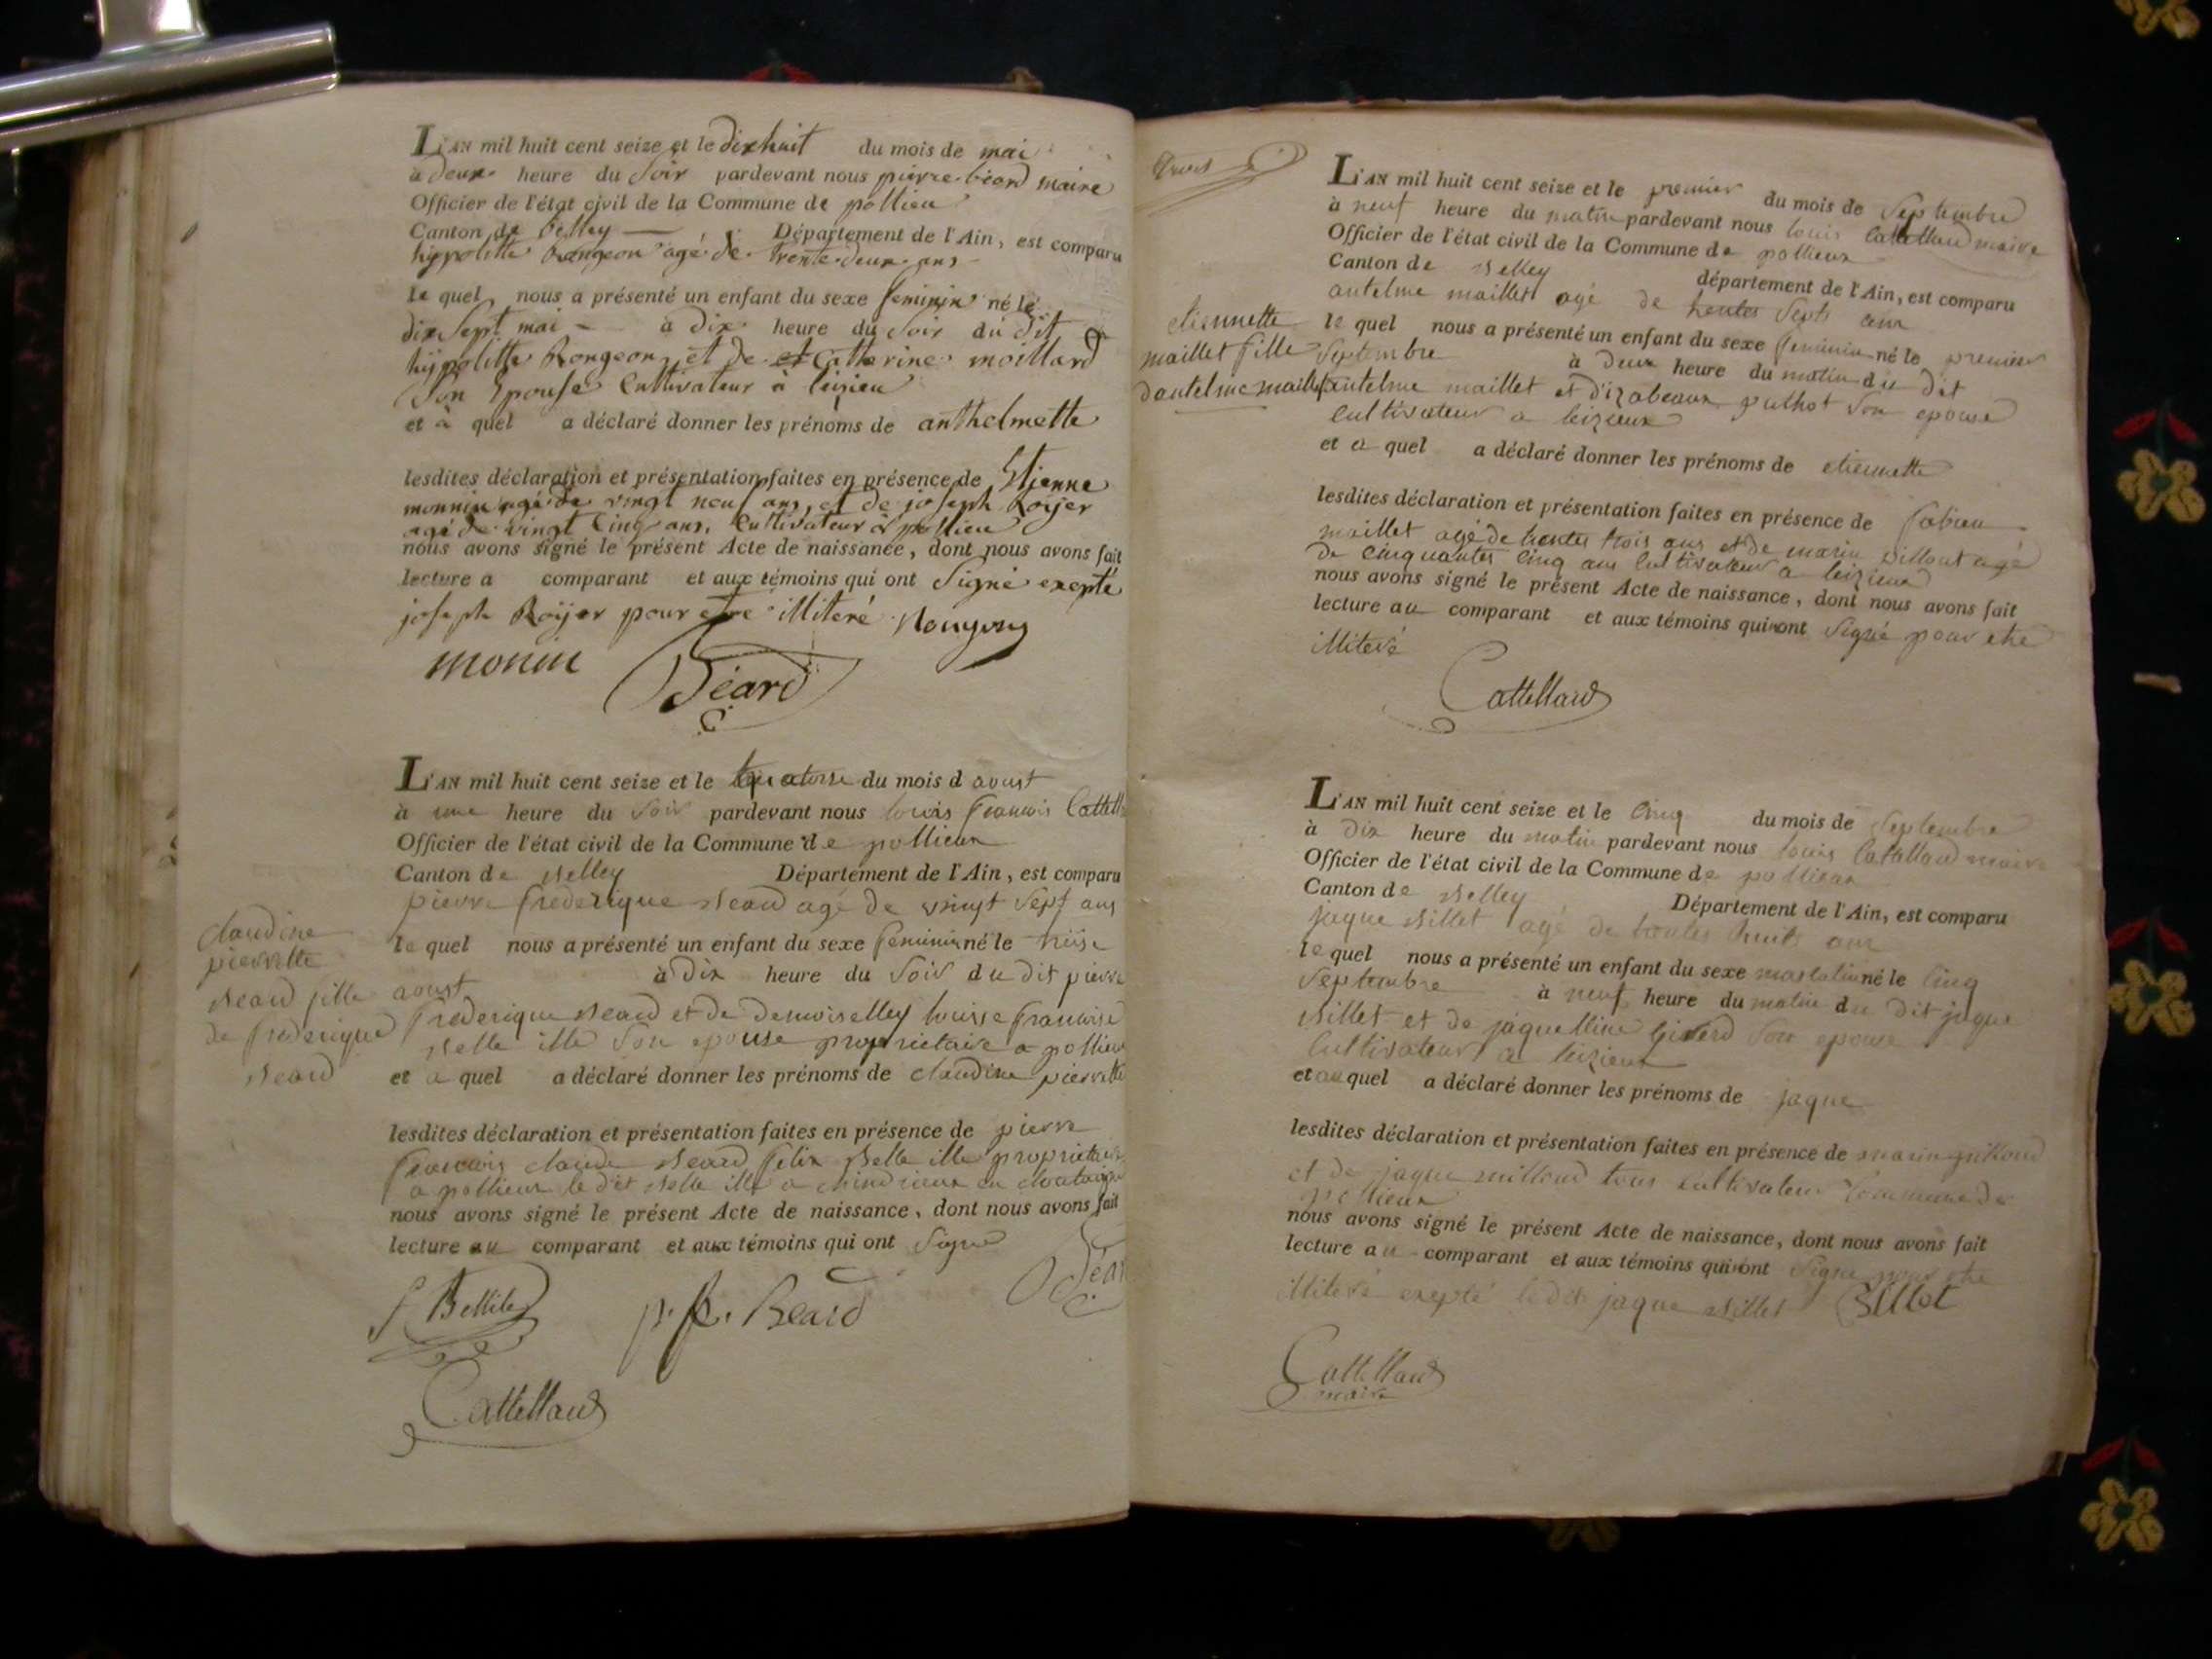 L'AN mil huit cent seize et le dixhuit du mois de mai
à deux heure du Soir pardevant nous pierre béard maire
Officier de l'état civil de la Commune de pollieu
Canton de belley Département de l'Ain, est comparu
hyppolitte Rongeon agé de trente deux ans
le quel nous a présenté un enfant du sexe feminin né le
dix Sept mai à dix heure du Soir du dit
hyppolitte Rongeon, et de et Catherine moillard
Son Epouse Cultivateur à leizieu
et à quel a déclaré donner les prénoms de anthelmette
lesdites déclaration et présentation faites en présence de Etienne
monnin agé de vingt neuf ans, et de joseph Roijer
agé de vingt Cinq ans, Cultivateur à pollieu
nous avons signé le présent Acte de naissance, dont nous avons fait
lecture a comparant et aux témoins qui ont Signé exepté
joseph Roijer pour etre illiteré
monin
Béard
L'AN mil huit cent seize et le quatorse du mois d aoust
à une heure du Soir pardevant nous louis francois
Officier de l'état civil de la Commune de pollieux
Canton de Belley Département de l'Ain, est comparu
pierre frederique Beard agé de vingt Sept ans
le quel nous a présenté un enfant du sexe feminin né le treise
aoust à Dix heure du Soir du dit pierre
frederique Beard et de Demoiselley louisse francoise
Belle ille Son epouse proprietaire a pollieux
et a quel a déclaré donner les prénoms de claudine pierrette
claudine
pierrette
Beard fille
de frederique
Beard
lesdites déclaration et présentation faites en présence de pierre
francois claude Beard felix Belle ille proprietaire
a pollieux le dit Belle ille a chindrieux en
nous avons signé le présent Acte de naissance, dont nous avons fait
lecture au comparant et aux témoins qui ont Signé
p. f. Beard
Cattelland
L'AN mil huit cent seize et le premier du mois de Septembre
à neuf heure du matin pardevant nous louis Cattelland maire
Officier de l'état civil de la Commune de pollieux
Canton de Belley département de l'Ain, est comparu
antelme maillet agé de trentes Septs ans
le quel nous a présenté un enfant du sexe feminin né le premier
Septembre à Deux heure du matin du Dit
antelme maillet et d'izabeaux Son epouse
Cultivateur a leizieux
etiennette
maillet fille
dantelme maillet
et a quel a déclaré donner les prénoms de etiennette
lesdites déclaration et présentation faites en présence de fabien
maillet agé de trentes trois ans et de marin agé
De Cinquantes Cinq ans Cultivateur a leizieux
nous avons signé le présent Acte de naissance, dont nous avons fait
lecture au comparant et aux témoins qui nont Signé pour etre
illiteré
Cattelland
L'AN mil huit cent seize et le Cinq du mois de Septembre
à Dix heure du matin pardevant nous louis Cattelland maire
Officier de l'état civil de la Commune de pollieux
Canton de Belley Département de l'Ain, est comparu
jaque Billet agé de trentes huits ans
le quel nous a présenté un enfant du sexe masculin né le Cinq
Septembre à neuf heure du matin du Dit jaque
Billet et de jaquelline Son epouse
Cultivateur a leizieux
et au quel a déclaré donner les prénoms de jaque
lesdites déclaration et présentation faites en présence de marin
et de jaque milloud tous cultivateur Commune de
pollieux
nous avons signé le présent Acte de naissance, dont nous avons fait
lecture au comparant et aux témoins qui nont Signé pour etre
illiteré exepté le dit jaque Billet Billet
Cattelland
maire